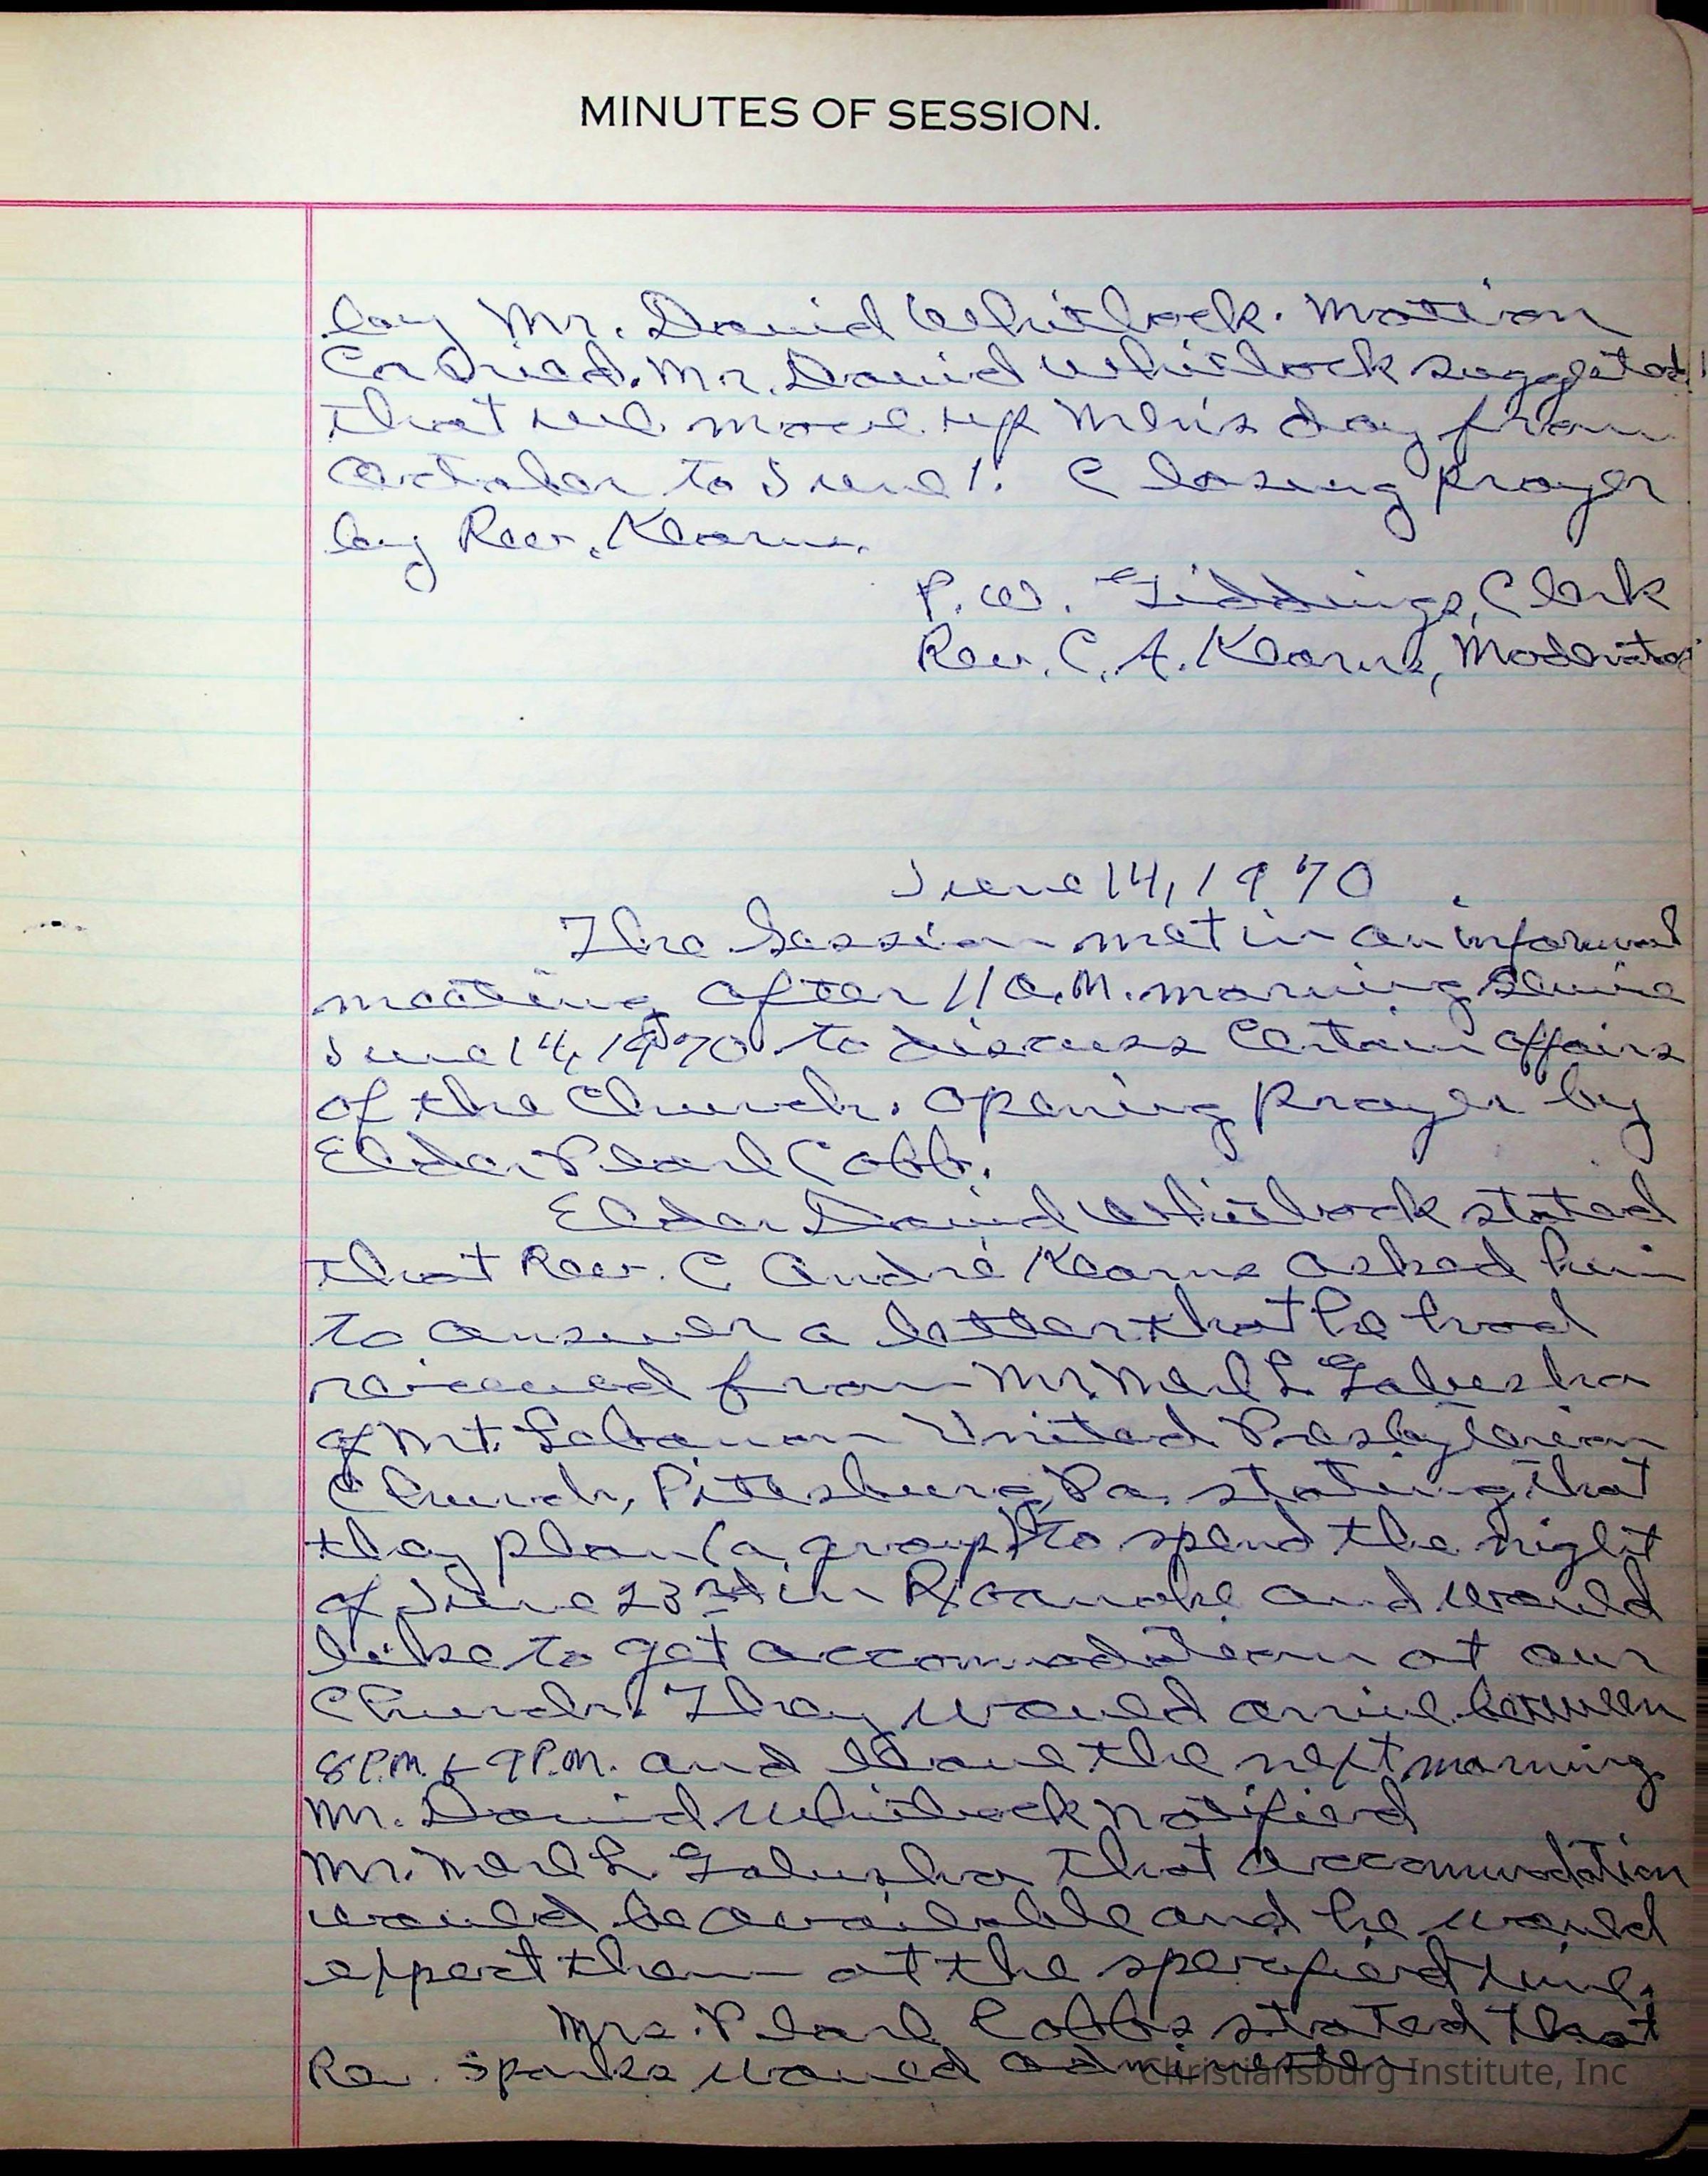 MINUTES OF SESSION.
by Mr. David Whitlock. Motion
Carried. Mr. David Whitlock suggested
that we move up Men's day from
October to June 1. Closing prayer
by Rev. Kearns.
P. W. Giddings, Clerk
Rev. C. A. Kearns, Moderator
June 14, 1970
The Session met in an informal
meeting after 11 A.M. morning service
June 14, 1970 to discuss Certain affairs
of the Church. Opening prayer by
Elder Pearl Cobb.
Elder David Whitlock stated
that Rev. C. André Kearns asked him
to answer a letter that he had
received from Mr. Merl L. Galusha
of Mt. Lebanon United Presbyterian
Church, Pittsburg, Pa. stating that
they plan (a group) to spend the night
of June 23rd in Roanoke and would
like to get accommodation at our
Church. They would arrive between
8 P.M. & 9 P.M. and leave the next morning.
Mr. David Whitlock notified
Mr. Merl L. Galusha that accommodation
would be available and he would
expect them at the specified time.
Mrs. Pearl Cobbs stated that
Rev. Sparks would administer
Christiansburg Institute, Inc